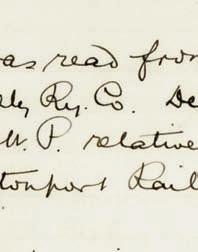 as read from
Ry. Co. De
W. P. relative
tonport Rail